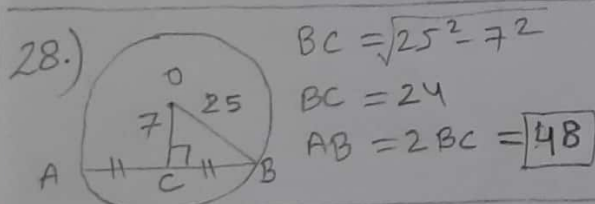 28.)
O
7
25
A
C
B
BC = √25² - 7²
BC = 24
AB = 2BC = 48